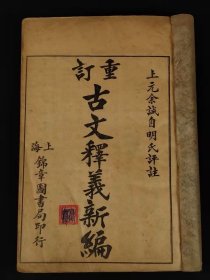 上元余誠自明氏評註
重訂
古文釋義新編
上海
錦章圖書局印行